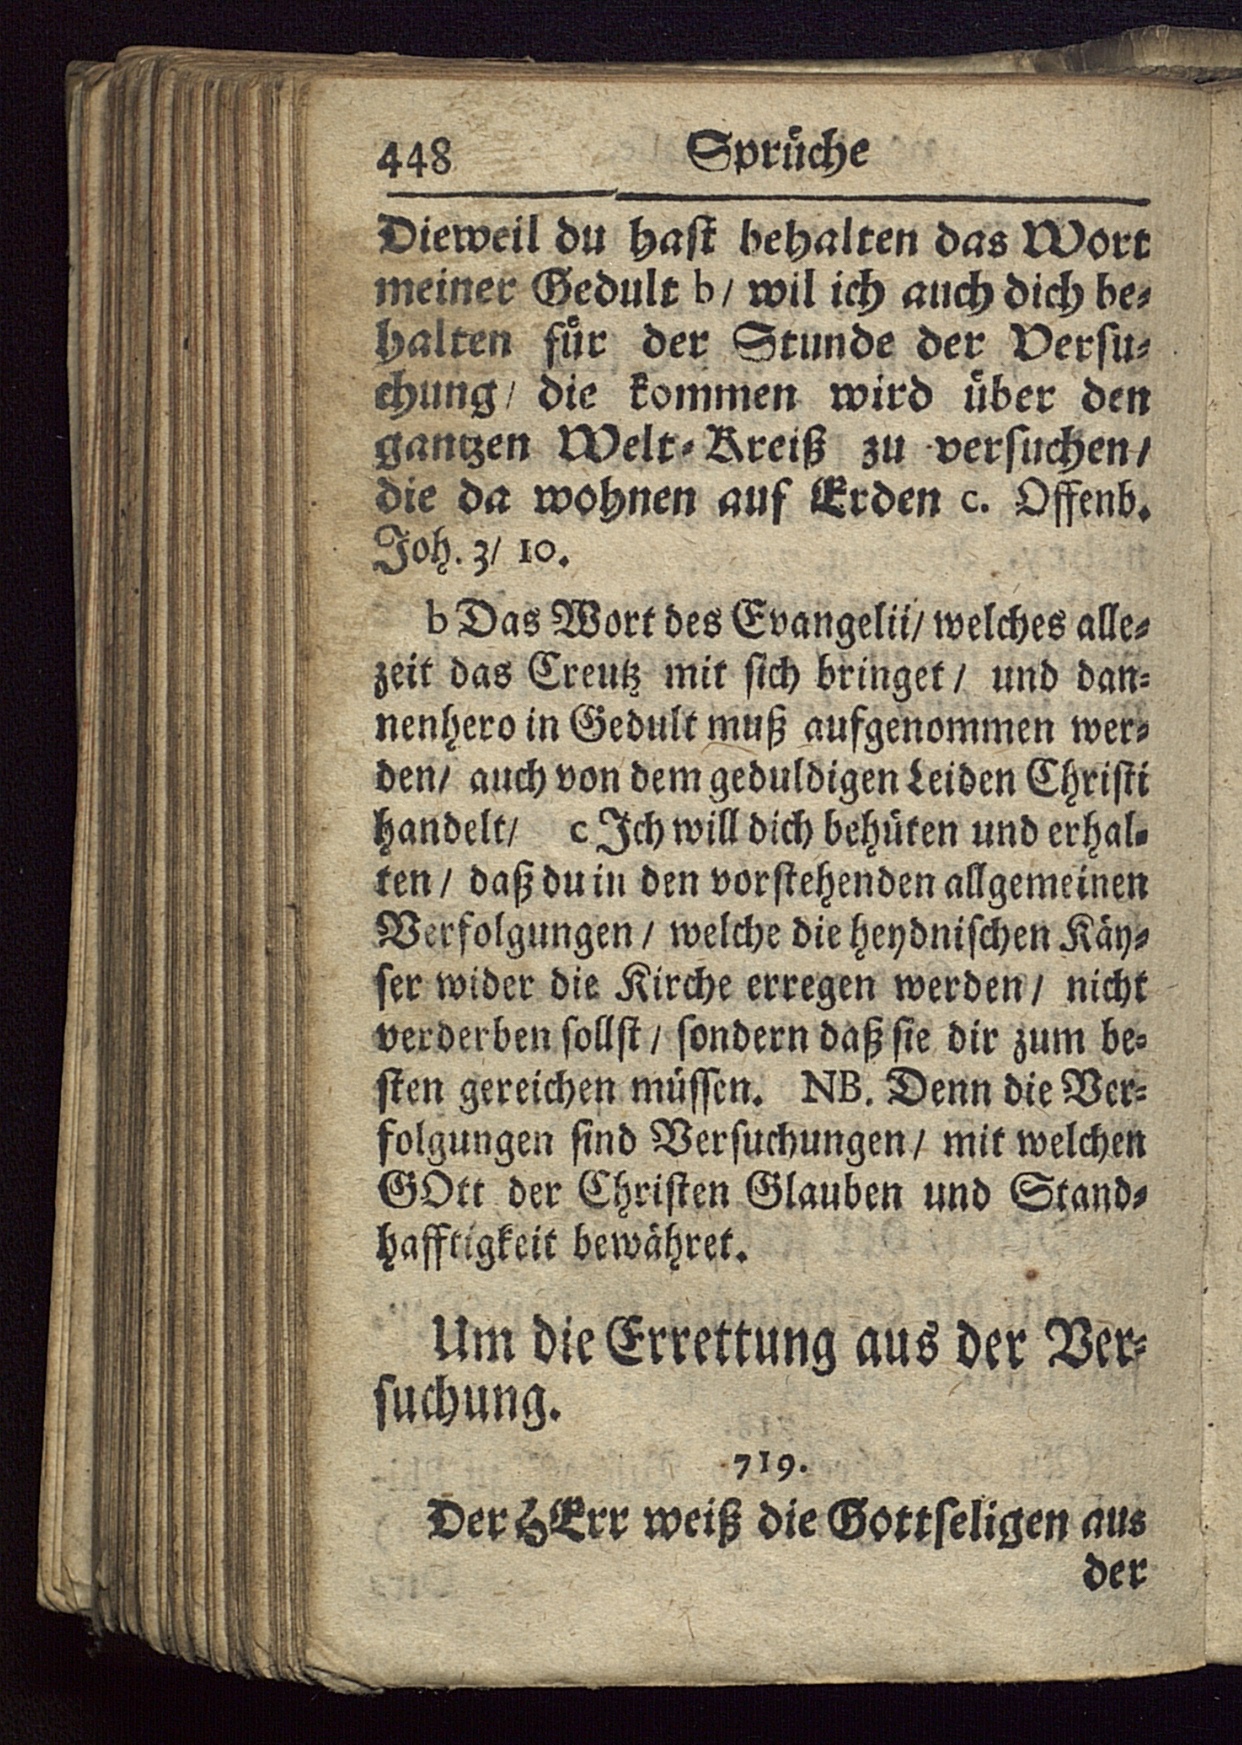 448 Sprüche
Dieweil du hast behalten das Wort
meiner Gedult b/ wil ich auch dich be-
halten für der Stunde der Versu-
chung/ die kommen wird über den
gantzen Welt-Kreiß zu versuchen/
die da wohnen auf Erden c. Offenb.
Joh. 3/ 10.
b Das Wort des Evangelii/ welches alle-
zeit das Creutz mit sich bringet/ und dan-
nenhero in Gedult muß aufgenommen wer-
den/ auch von dem geduldigen Leiden Christi
handelt/ c Ich will dich behüten und erhal-
ten/ daß du in den vorstehenden allgemeinen
Verfolgungen/ welche die heydnischen Käy-
ser wider die Kirche erregen werden/ nicht
verderben sollst/ sondern daß sie dir zum be-
sten gereichen müssen. NB. Denn die Ver-
folgungen sind Versuchungen/ mit welchen
GOtt der Christen Glauben und Stand-
hafftigkeit bewähret.
Um die Errettung aus der Ver-
suchung.
719.
Der HErr weiß die Gottseligen aus
der